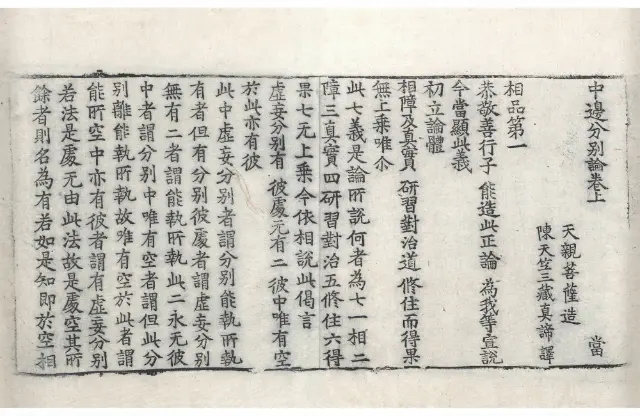 中邊分別論卷上
天親菩薩造　當
陳天竺三藏真諦譯
相品第一
恭敬善行子　能造此正論　為我等宣說
今當顯此義
初立論體
相障及真實　研習對治道　修住而得果
無上乘唯尒
此七義是論所說何者為七一相二
障三真實四研習對治五修住六得
果七无上乘今依相說此偈言
虛妄分別有　彼處无有二　彼中唯有空
於此亦有彼
此中虛妄分別者謂分別能執所執
有者但有分別彼處者謂虛妄分別
無有二者謂能執所執此二永无彼
中者謂分別中唯有空者謂但此分
別離能執所執故唯有空於此者謂
能所空中亦有彼者謂有虛妄分別
若法是處无由此法故是處空其所
餘者則名為有若如是知即於空相